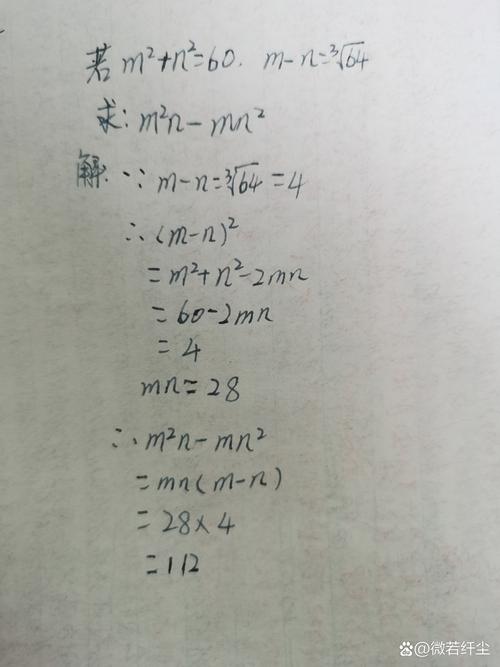 若 m²+n²=60. m-n=³√64
求: m²n-mn²
解: ∵ m-n=³√64=4
∴(m-n)²
=m²+n²-2mn
=60-2mn
=4
mn=28
∴ m²n-mn²
=mn(m-n)
=28×4
=112
@微若纤尘